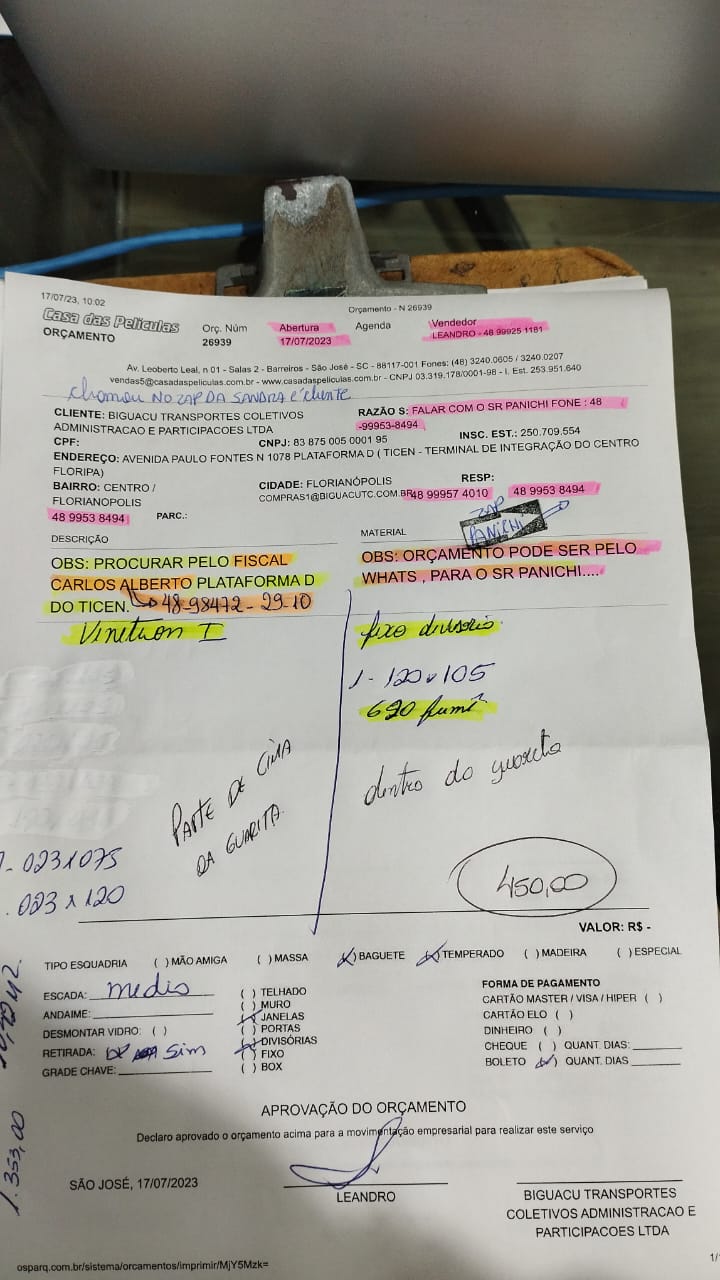 17/07/23, 10:02
Orçamento - N 26939
Casa das Películas
ORÇAMENTO
Orç. Núm
26939
Abertura
17/07/2023
Agenda
Vendedor
LEANDRO - 48 99925 1181
Av. Leoberto Leal, n 01 - Salas 2 - Barreiros - São José - SC - 88117-001 Fones: (48) 3240.0605 / 3240.0207
vendas5@casadaspeliculas.com.br - www.casadaspeliculas.com.br - CNPJ 03.319.178/0001-98 - I. Est. 253.951.640
chamou NO ZAP DA SANDRA é cliente
CLIENTE: BIGUACU TRANSPORTES COLETIVOS
ADMINISTRACAO E PARTICIPACOES LTDA
RAZÃO S: FALAR COM O SR PANICHI FONE : 48
-99953-8494
CPF:
CNPJ: 83 875 005 0001 95
INSC. EST.: 250.709.554
ENDEREÇO: AVENIDA PAULO FONTES N 1078 PLATAFORMA D ( TICEN - TERMINAL DE INTEGRAÇÃO DO CENTRO
FLORIPA)
BAIRRO: CENTRO /
FLORIANOPOLIS
CIDADE: FLORIANÓPOLIS
COMPRAS1@BIGUACUTC.COM.BR
RESP:
48 99957 4010
48 9953 8494
48 9953 8494
PARC.:
ZAP
PANICHI
DESCRIÇÃO
MATERIAL
OBS: PROCURAR PELO FISCAL
CARLOS ALBERTO PLATAFORMA D
DO TICEN.
48-98472-29-10
OBS: ORÇAMENTO PODE SER PELO
WHATS , PARA O SR PANICHI....
fixo divisoria
1- 120x105
620 fumê
dentro do guarita
PARTE DE CIMA
DA GUARITA.
- 023x075
. 023 x 120
450,00
VALOR: R$ -
TIPO ESQUADRIA ( ) MÃO AMIGA ( ) MASSA (X) BAGUETE (X) TEMPERADO ( ) MADEIRA ( ) ESPECIAL
ESCADA: medio
ANDAIME:
DESMONTAR VIDRO: ( )
RETIRADA: sim
GRADE CHAVE:
( ) TELHADO
( ) MURO
(X) JANELAS
( ) PORTAS
(X) DIVISÓRIAS
( ) FIXO
( ) BOX
FORMA DE PAGAMENTO
CARTÃO MASTER / VISA / HIPER ( )
CARTÃO ELO ( )
DINHEIRO ( )
CHEQUE ( ) QUANT. DIAS:
BOLETO (X) QUANT. DIAS
1.353,00
APROVAÇÃO DO ORÇAMENTO
Declaro aprovado o orçamento acima para a movimentação empresarial para realizar este serviço
SÃO JOSÉ, 17/07/2023
LEANDRO
BIGUACU TRANSPORTES
COLETIVOS ADMINISTRACAO E
PARTICIPACOES LTDA
osparq.com.br/sistema/orcamentos/imprimir/MjY5Mzk=
1/